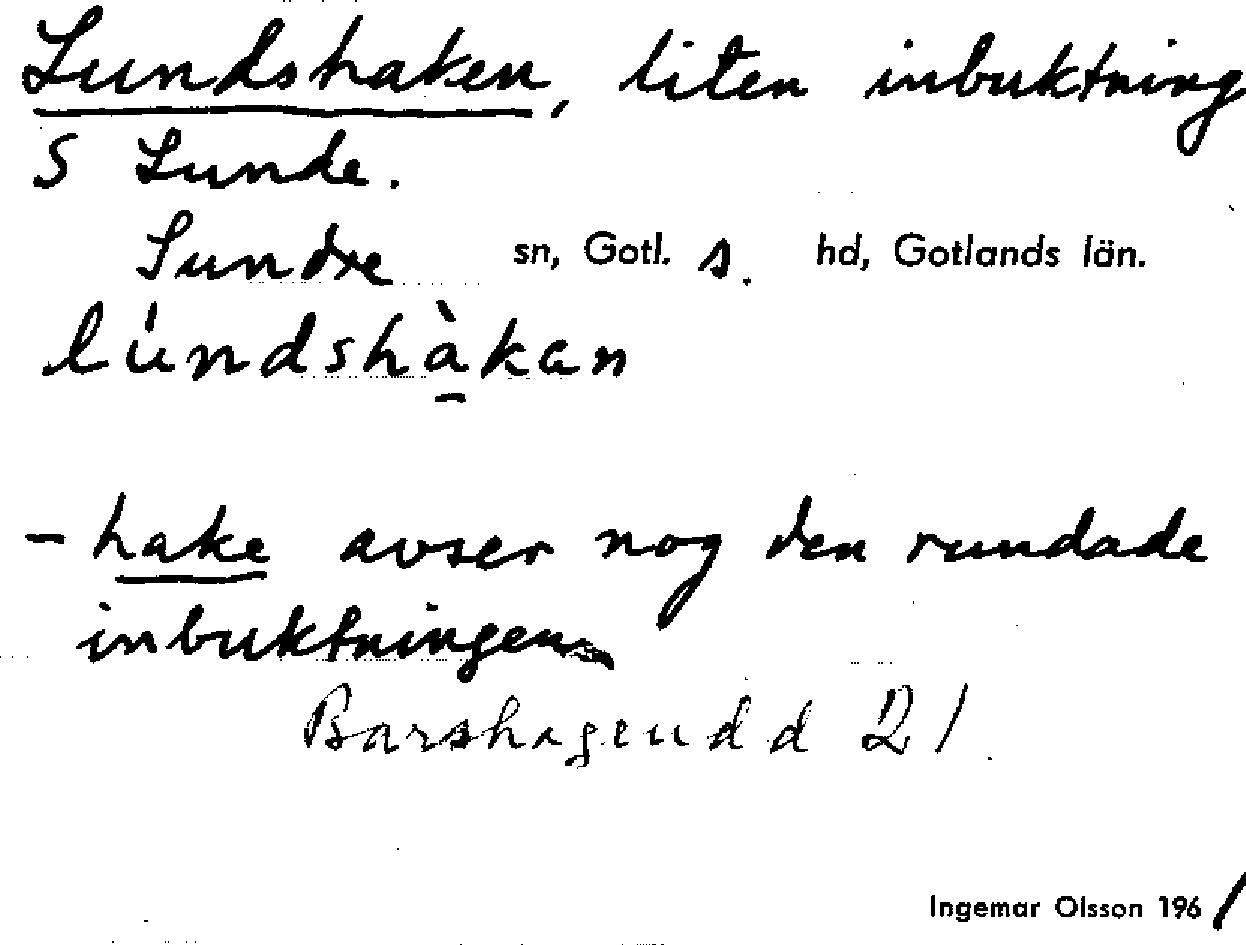 Lundshaken, liten inbuktning
S Lunde.
Sundre sn, Gotl. s. hd, Gotlands län.
lúndshàkan
- hake avser nog den rundade
inbuktningen
Barshageudd 21
Ingemar Olsson 1961